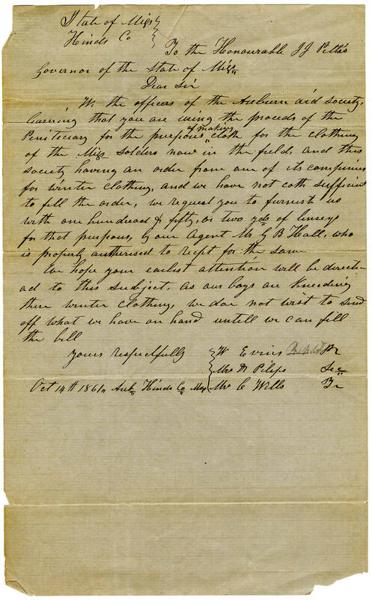 State of Miss
Hinds Co
To the Honourable J J Pettus
Governor of the State of Miss
Dear Sir
We the officers of the Auburn aid society
learning that you are using the proceeds of the
Peniteciary for the purpose of making cloth for the clothing
of the Miss Solders now in the field, and this
society having an order from one of its companies
for winter clothing, and we have not coth sufficient
to fill the order, we request you to furnish us
with one hundred & fifty, or two yds of linsey
for that purpous, by our agent Mr G B Hall, who
is properly authorised to recpt for the same
We hope your earlist attention will be directe
ad to this subject. as our boys ar kneeding
there winter clothing, we dor not wist to send
off what we have on hand untell we can fill
the bill
yours respectfully
W Evins Pr
Mrs Pilips Sec
Oct 14th 1861 Aub Hinds Co Miss Mrs C Wells Tr